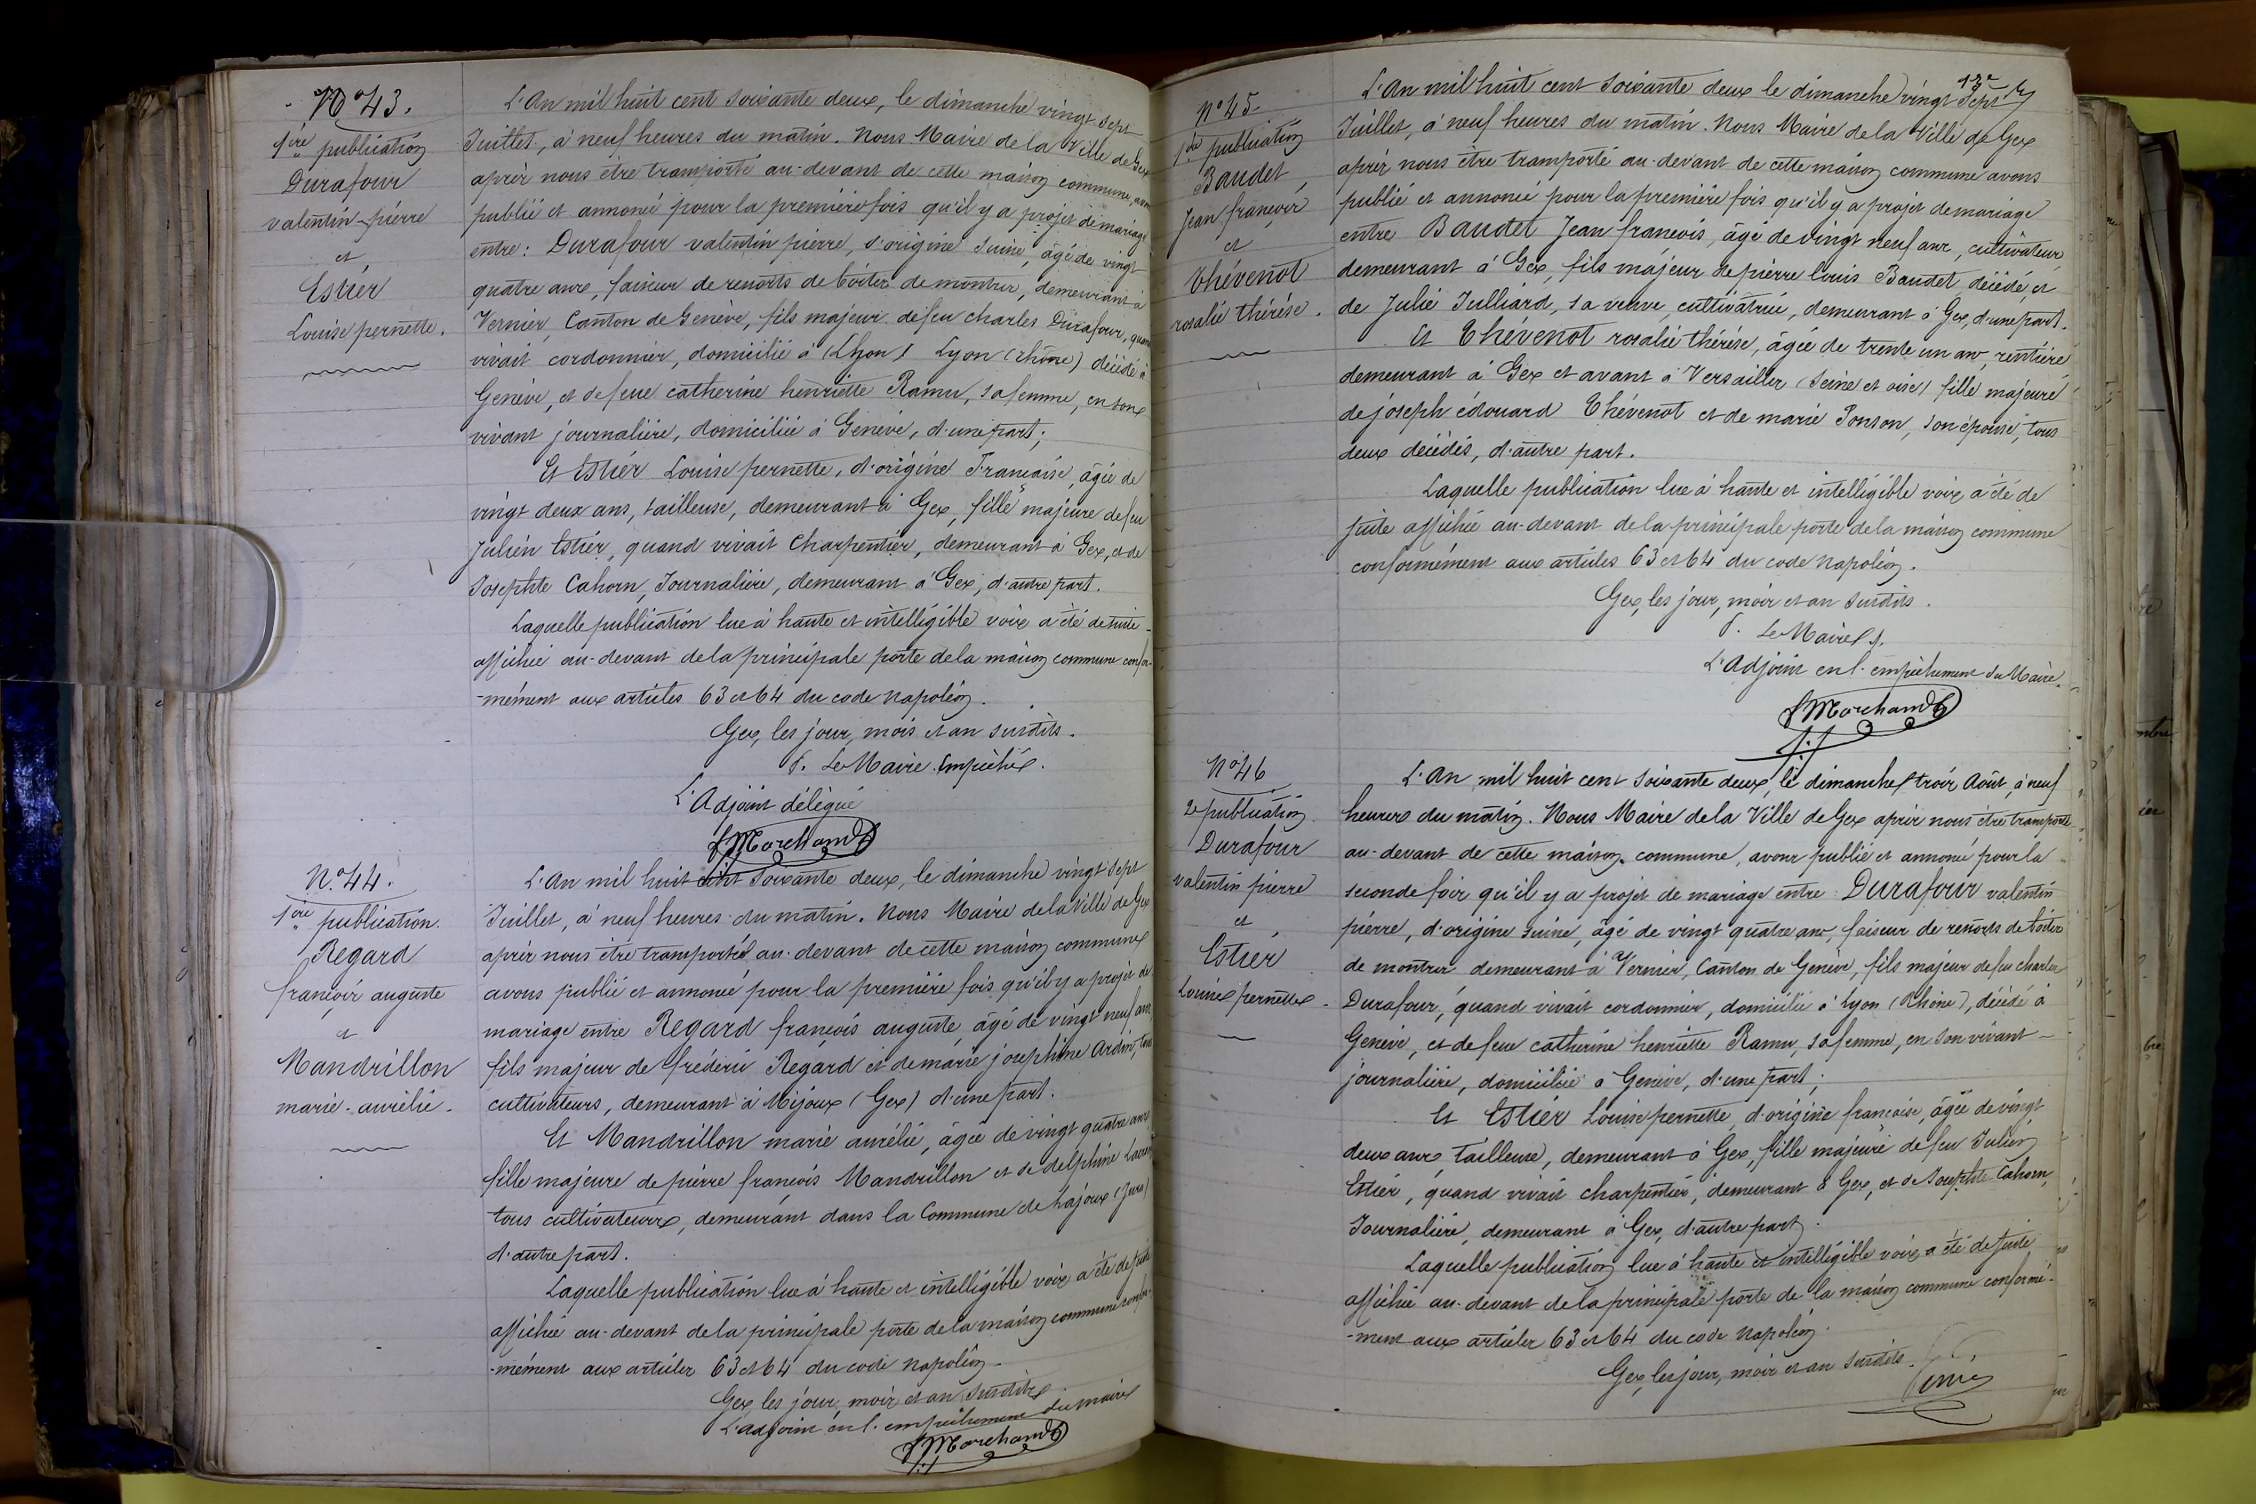 N° 43.
1ère publication
Durafour
valentin-pierre
et
Estier
Louise pernette.
L'An mil huit cent soixante deux, le dimanche vingt sept
Juillet, à neuf heures du matin. Nous Maire de la Ville de Gex
après nous être transporté au-devant de cette maison commune, avons
publié et annoncé pour la première fois qu'il y a projet de mariage
entre: Durafour valentin pierre, d'origine suisse, âgé de vingt
quatre ans, faiseur de ressorts de boîtes de montres, demeurant à
Vernier, Canton de Genève, fils majeur de feu charles Durafour, quand
vivait cordonnier, domicilié à (Lyon) Lyon (rhône) décédé à
Genève, et de feue catherine henriette Ramu, sa femme, en son
vivant journalière, domiciliée à Genève, d'une part;
Et Estier Louise pernette, d'origine Française, âgée de
vingt deux ans, tailleuse, demeurant à Gex, fille majeure de feu
Julien Estier, quand vivait Charpentier, demeurant à Gex, et de
Josephte Cahorn, Journalière, demeurant à Gex, d'autre part.
Laquelle publication lue à haute et intelligible voix a été de suite
affichée au-devant de la principale porte de la maison commune confor-
-mément aux articles 63 et 64 du code napoléon.
Gex, les jour, mois et an susdits.
P. Le Maire Empêché.
L'Adjoint délégué
Marchand
N° 44.
1ère publication.
Regard
françois auguste
et
Mandrillon
marie-aurélie.
L'An mil huit cent soixante deux, le dimanche vingt sept
Juillet, à neuf heures du matin. Nous Maire de la Ville de Gex
après nous être transporté au-devant de cette maison commune
avons publié et annoncé pour la première fois qu'il y a projet de
mariage entre Regard françois auguste, âgé de vingt neuf ans,
fils majeur de frédéric Regard et de marie josephine Ardin, tous
cultivateurs, demeurant à Mijoux (Gex) d'une part.
Et Mandrillon marie aurélie, âgée de vingt quatre ans
fille majeure de pierre françois Mandrillon et de delphine
tous cultivateurs, demeurant dans la Commune de Lajoux (Jura)
d'autre part.
Laquelle publication lue à haute et intelligible voix a été de suite
affichée au-devant de la principale porte de la maison commune confor-
-mément aux articles 63 et 64 du code napoléon.
Gex, les jour, mois et an susdits.
L'adjoint en l'empêchement du maire
Marchand
N° 45.
1re publication
Baudet
Jean françois
et
Thévenot
rosalie thérèse.
L'An mil huit cent soixante deux le dimanche vingt sept
Juillet, à neuf heures du matin. Nous Maire de la Ville de Gex
après nous être transporté au-devant de cette maison commune avons
publié et annoncé pour la première fois qu'il y a projet de mariage
entre Baudet Jean françois, âgé de vingt neuf ans, cultivateur,
demeurant à Gex, fils majeur de pierre louis Baudet, décédé, et
de Julie Julliard, sa veuve, cultivatrice, demeurant à Gex, d'une part.
Et Thévenot rosalie thérèse, âgée de trente un ans, rentière
demeurant à Gex et avant à Versailles (Seine et oise) fille majeure
de joseph édouard Thévenot et de marie Ponson, son épouse, tous
deux décédés, d'autre part.
Laquelle publication lue à haute et intelligible voix a été de
suite affichée au-devant de la principale porte de la maison commune
conformément aux articles 63 et 64 du code napoléon.
Gex, les jour, mois et an susdits.
P. Le Maire
L'Adjoint en l'empêchement du Maire.
Marchand
N° 46
2e publication
Durafour
valentin pierre
et
Estier
Louise pernette
L'An mil huit cent soixante deux, le dimanche trois Août, à neuf
heures du matin. Nous Maire de la Ville de Gex après nous être transporté
au-devant de cette maison commune, avons publié et annoncé pour la
seconde fois qu'il y a projet de mariage entre Durafour valentin
pierre, d'origine suisse, âgé de vingt quatre ans, faiseur de ressorts de boîtes
de montres demeurant à Vernier, Canton de Genève, fils majeur de feu charles
Durafour, quand vivait cordonnier, domicilié à Lyon (Rhône), décédé à
Genève, et de feue catherine henriette Ramu, sa femme, en son vivant
journalière, domiciliée à Genève, d'une part;
Et Estier Louise pernette, d'origine française, âgée de vingt
deux ans, tailleuse, demeurant à Gex, fille majeure de feu Julien
Estier, quand vivait charpentier, demeurant à Gex, et de Josephte Cahorn,
Journalière, demeurant à Gex, d'autre part.
Laquelle publication lue à haute et intelligible voix a été de suite
affichée au-devant de la principale porte de la maison commune conformé-
-ment aux articles 63 et 64 du code napoléon.
Gex, les jour, mois et an susdits.